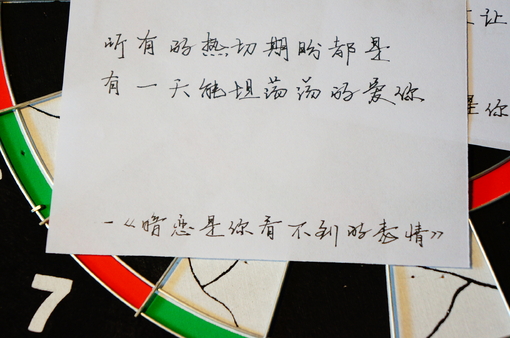 所有的热切期盼都是
有一天能坦荡荡的爱你
—《暗恋是你看不到的表情》
让
是你
7